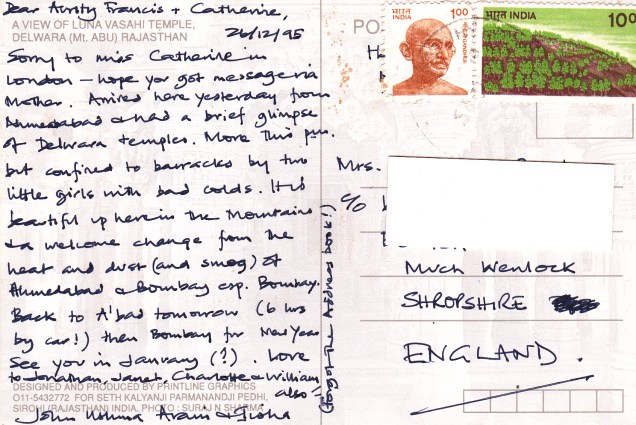 Dear Aunty Francis + Catherine,
A VIEW OF LUNA VASAHI TEMPLE,
DELWARA (Mt. ABU) RAJASTHAN
26/12/95
Sorry to miss Catherine in
London – hope you got message via
Mother. Arrived here yesterday from
Ahmedabad & had a brief glimpse
of Delwara temples. More this p.m.
but confined to barracks by two
little girls with bad colds. It is
beautiful up here in the Mountains
& a welcome change from the
heat and dust (and smog) of
Ahmedabad & Bombay esp. Bombay.
Back to A'bad tomorrow (6 hrs
by car!) then Bombay for New Year
See you in January (?). Love
to Jonathan, Janet, Charlotte & William
also –
DESIGNED AND PRODUCED BY PRINTLINE GRAPHICS
011-5432772 FOR SETH KALYANJI PARMANANDJI PEDHI,
SIROHI (RAJASTHAN) INDIA. PHOTO : SURAJ N SHARMA
John
(forgot the Address book!)
PO
भारत INDIA
100
भारत INDIA
100
Mrs.
c/o
Much Wenlock
SHROPSHIRE
ENGLAND.